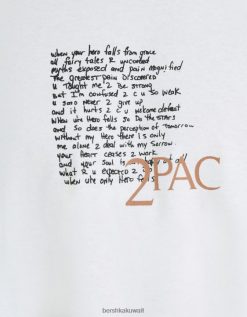 when your hero falls from grace
all fairy tales R uncovered
myths exposed and pain magnified
The greatest pain Discovered
u Taught me 2 Be strong
But I'm confused 2 c u so weak
u said never 2 give up
and it hurts 2 c u welcome defeat
When ure Hero falls so Do the stars
and so does the perception of Tomorrow
without my Hero there is only
me alone 2 deal with my Sorrow.
your Heart ceases 2 work
and your Soul is not happy at all
what R u expected 2 do
when ure only Hero falls
2PAC
bershkakuwait